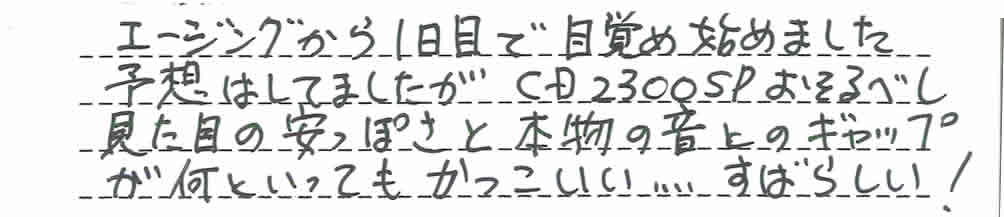 エージングから1日目で目覚め始めました
予想はしてましたが CD2300SPおそるべし
見た目の安っぽさと本物の音とのギャップ
が何といってもかっこいい.... すばらしい!